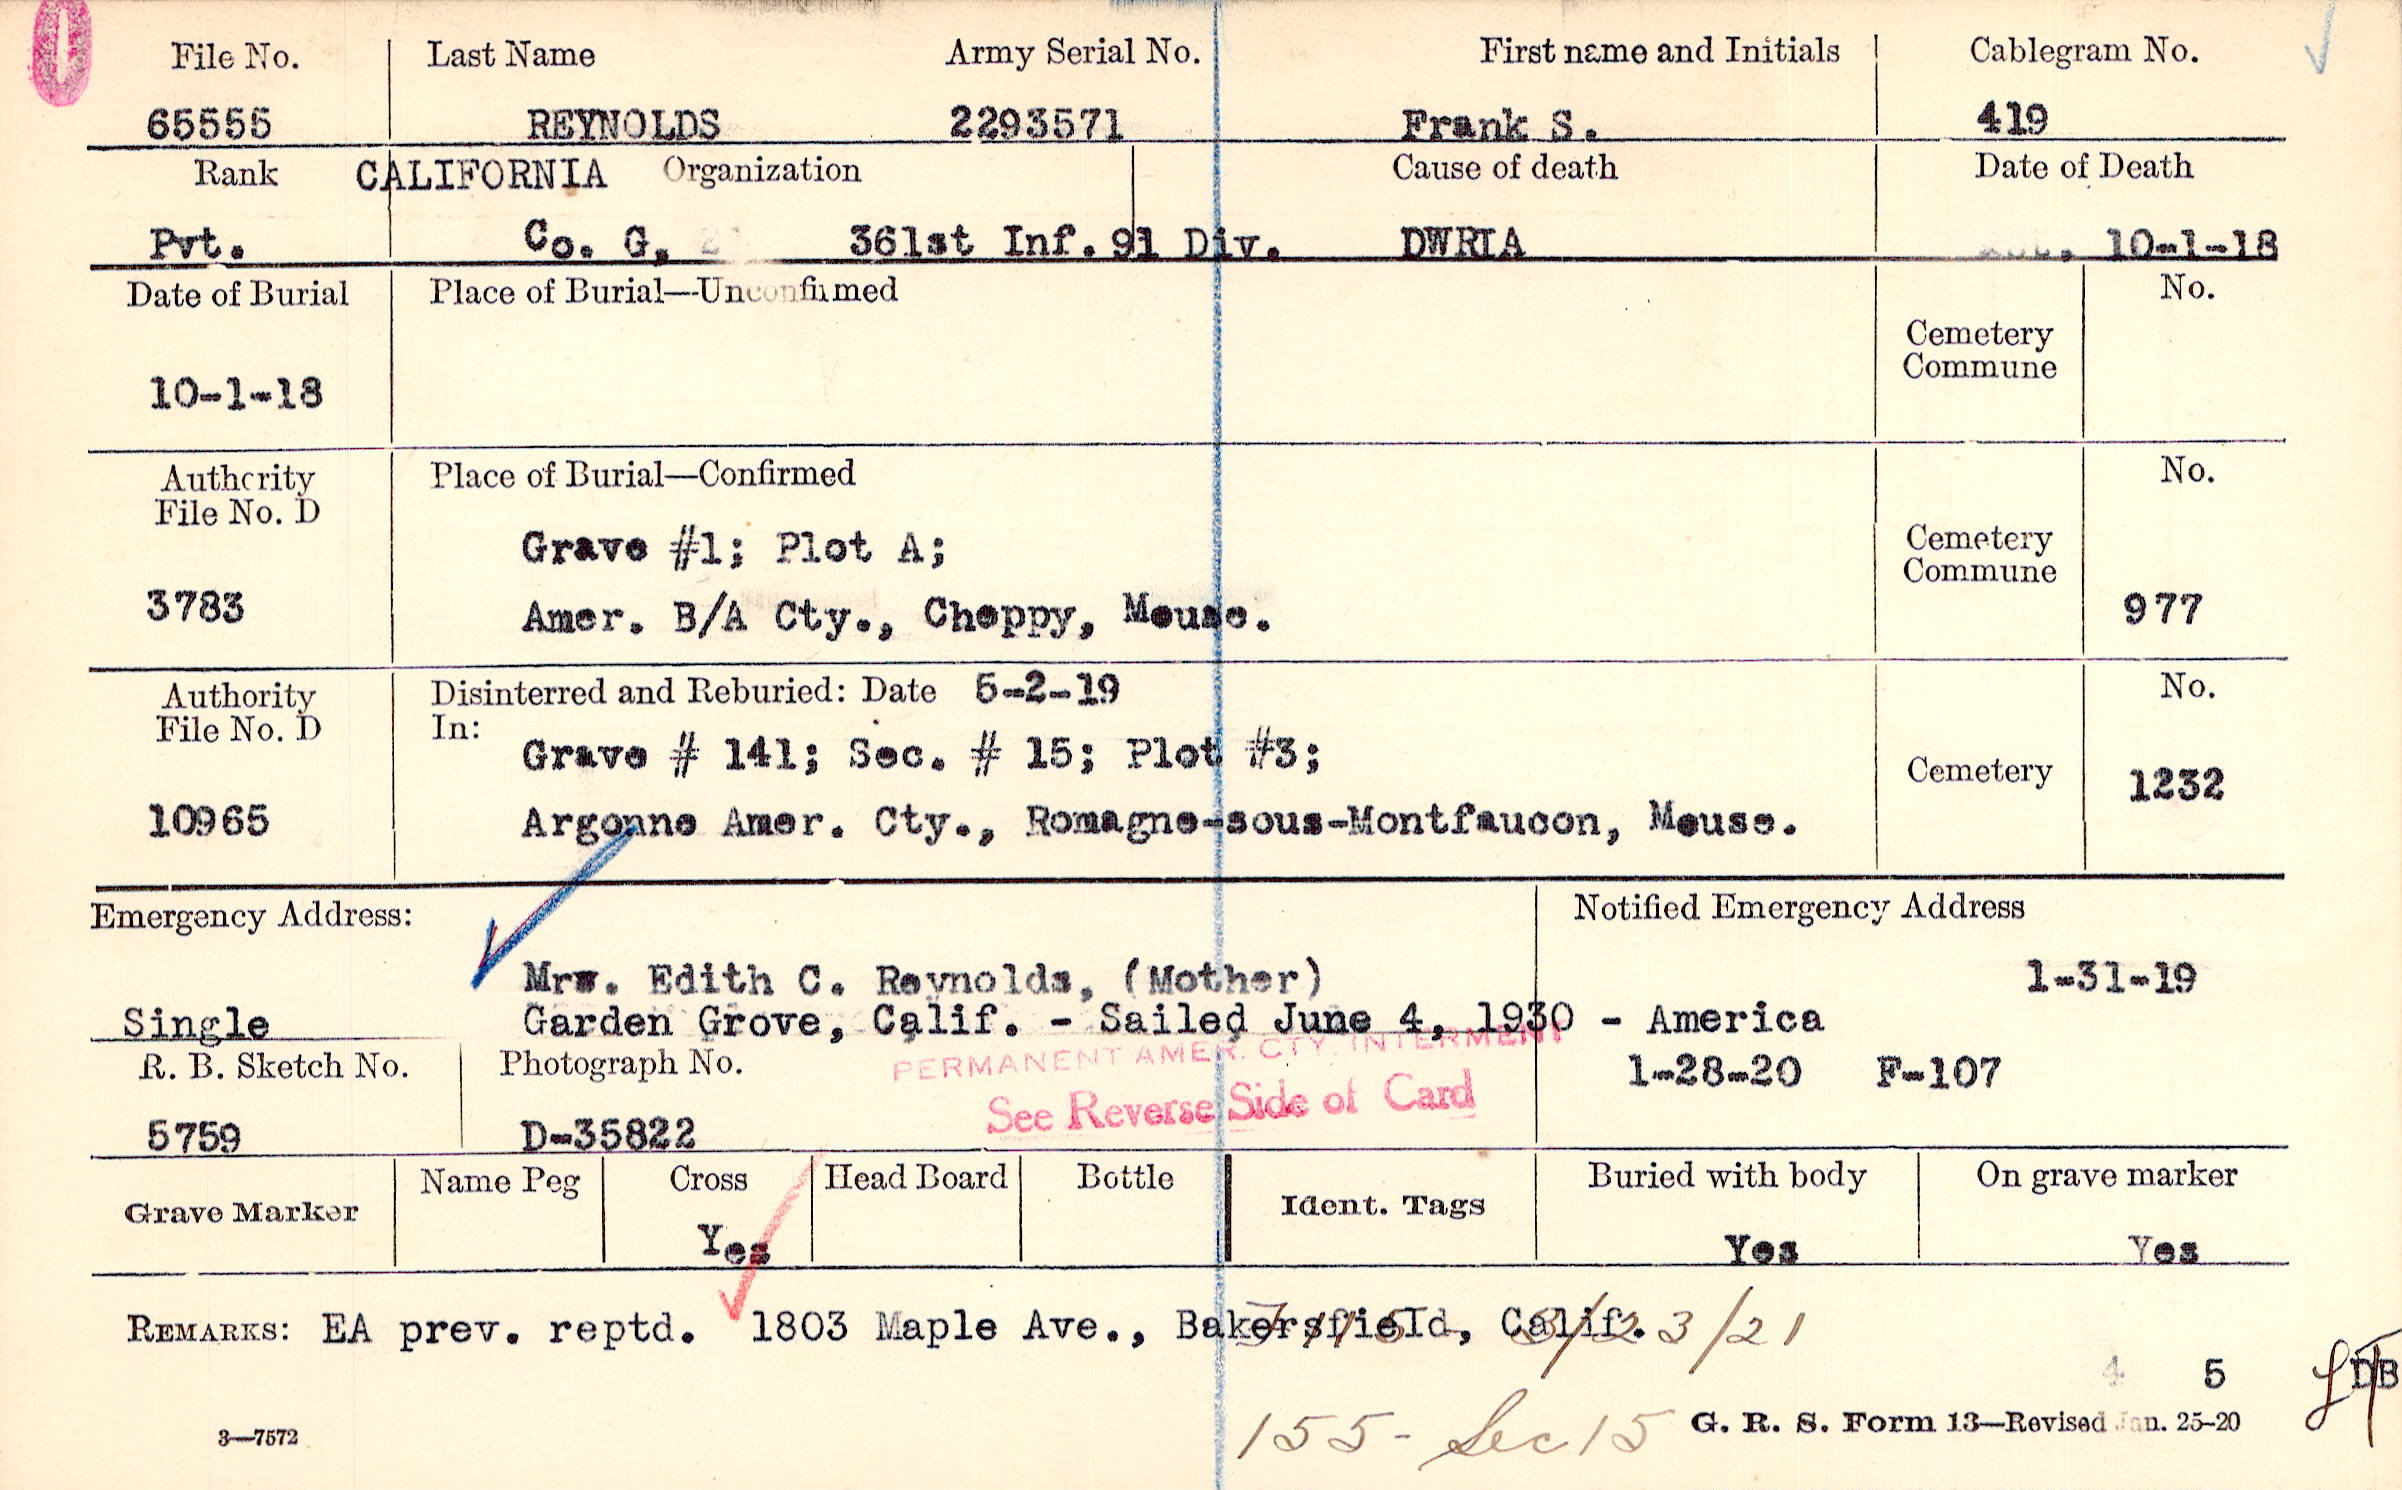 File No. Last Name Army Serial No. First name and Initials Cablegram No.
65555 REYNOLDS 2293571 Frank S. 419
Rank CALIFORNIA Organization Cause of death Date of Death
Pvt. Co. G, 361st Inf. 91 Div. DWRIA 10-1-18
Date of Burial Place of Burial—Unconfirmed No.
Cemetery
Commune
10-1-18
Authority Place of Burial—Confirmed No.
File No. D
Grave #1; Plot A; Cemetery
Commune
3783 Amer. B/A Cty., Cheppy, Meuse. 977
Authority Disinterred and Reburied: Date 5-2-19 No.
File No. D In:
Grave # 141; Sec. # 15; Plot #3; Cemetery 1232
10965 Argonne Amer. Cty., Romagne-sous-Montfaucon, Meuse.
Emergency Address: Notified Emergency Address
Mrs. Edith C. Reynolds, (Mother) 1-31-19
Single Garden Grove, Calif. - Sailed June 4, 1930 - America
PERMANENT AMER. CTY. INTERMENT
R. B. Sketch No. Photograph No. 1-28-20 F-107
See Reverse Side of Card
5759 D-35822
Grave Marker Name Peg Cross Head Board Bottle Ident. Tags Buried with body On grave marker
Yes Yes Yes
REMARKS: EA prev. reptd. 1803 Maple Ave., Bakersfield, Calif. 3/23/21
4 5 DB
155- Sec 15 G. R. S. Form 13—Revised Jan. 25-20
3—7572